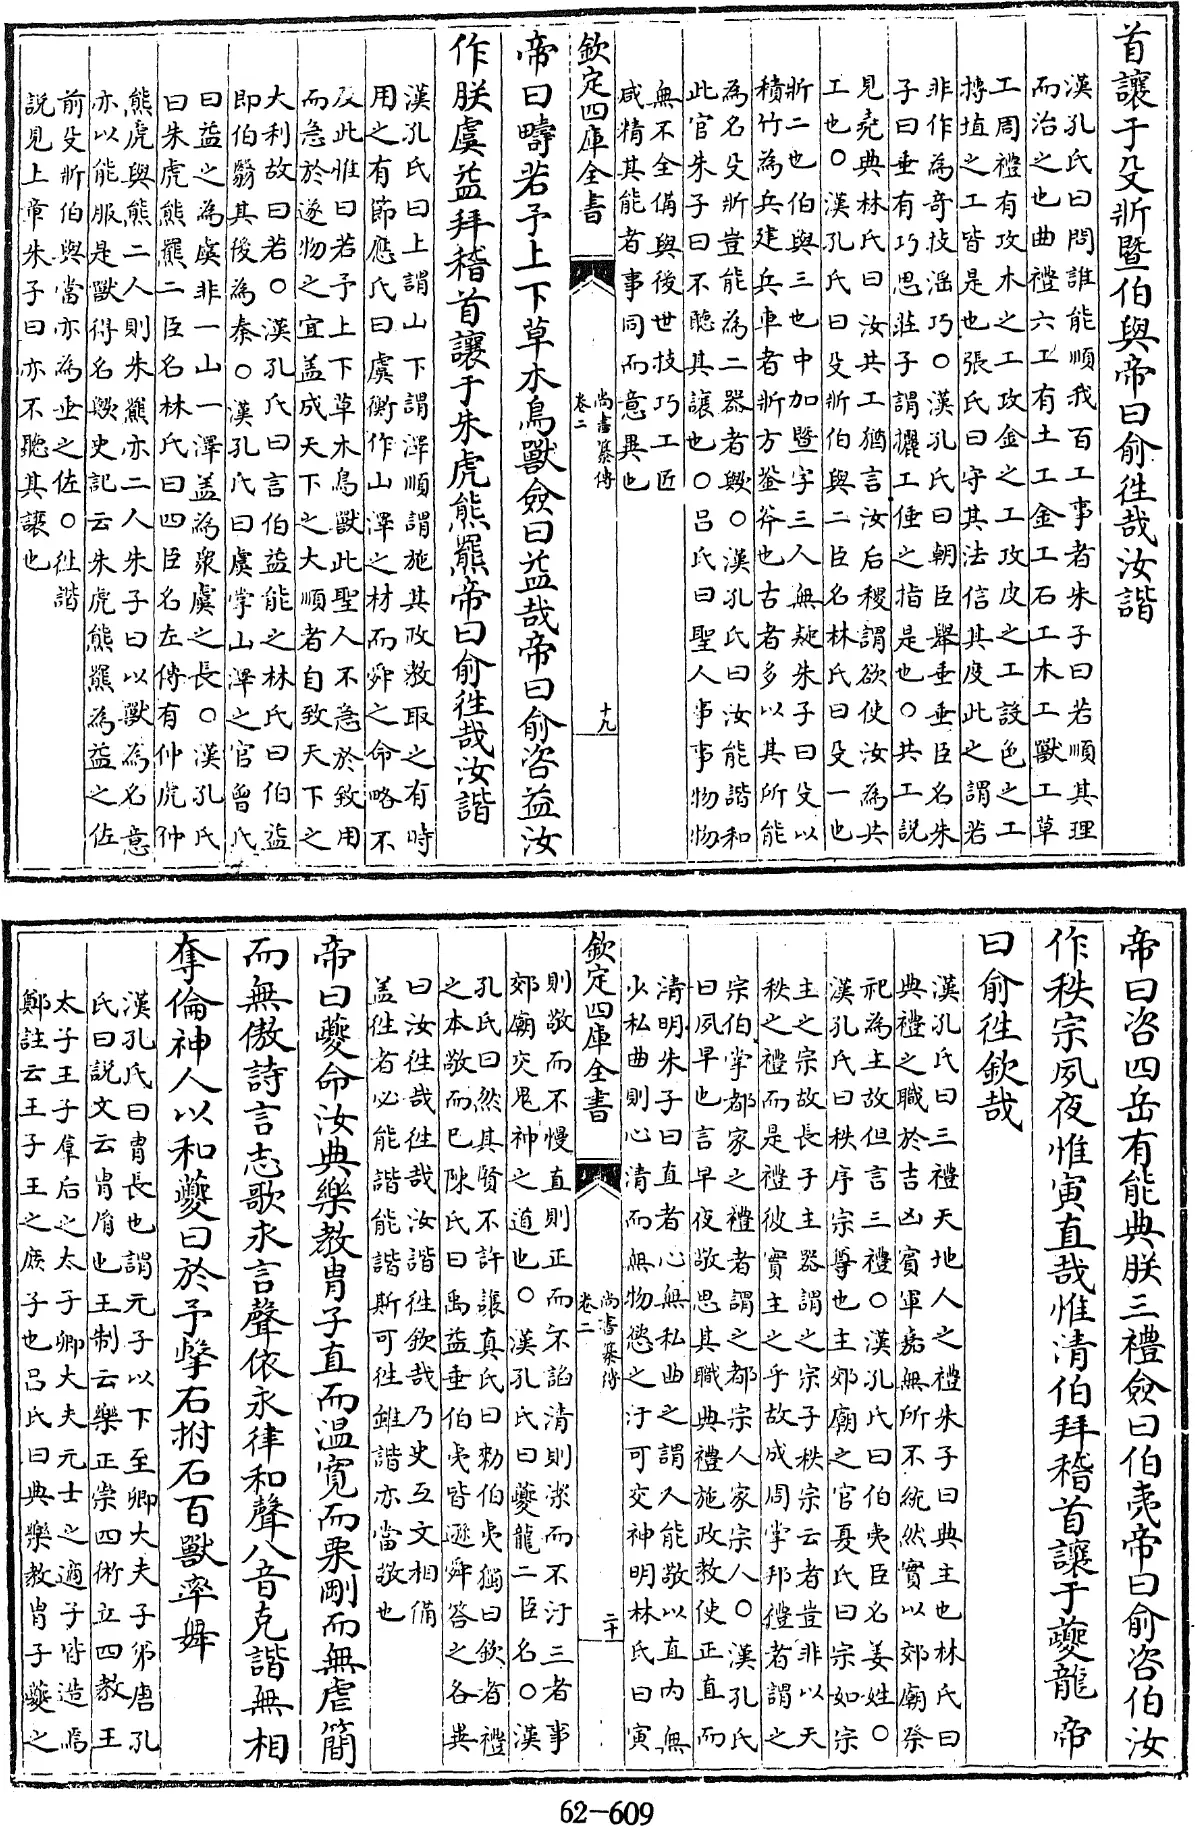 首讓于殳斨暨伯與帝曰俞徃哉汝諧
漢孔氏曰問誰能順我百工事者朱子曰若順其理
而治之也曲禮六工有土工金工石工木工獸工草
工周禮有攻木之工攻金之工攻皮之工設色之工
摶埴之工皆是也張氏曰守其法信其度此之謂若
非作為奇技滛巧○漢孔氏曰朝臣舉垂垂臣名朱
子曰垂有巧思莊子謂攦工倕之指是也○共工説
見堯典林氏曰汝共工猶言汝后稷謂欲使汝為共
工也○漢孔氏曰殳斨伯與二臣名林氏曰殳一也
斨二也伯與三也中加暨字三人無疑朱子曰殳以
積竹為兵建兵車者斨方銎斧也古者多以其所能
為名殳斨豈能為二器者歟○漢孔氏曰汝能諧和
此官朱子曰不聽其讓也○吕氏曰聖人事事物物
無不全備與後世技巧工匠
咸精其能者事同而意異也
欽定四庫全書
尚書纂傳
卷二
十九
帝曰疇若予上下草木鳥獸僉曰益哉帝曰俞咨益汝
作朕虞益拜稽首讓于朱虎熊羆帝曰俞徃哉汝諧
漢孔氏曰上謂山下謂澤順謂施其政教取之有時
用之有節應氏曰虞衡作山澤之材而舜之命略不
及此惟曰若予上下草木鳥獸此聖人不急於致用
而急於遂物之宜盖成天下之大順者自致天下之
大利故曰若○漢孔氏曰言伯益能之林氏曰伯益
即伯翳其後為秦○漢孔氏曰虞掌山澤之官曾氏
曰益之為虞非一山一澤盖為衆虞之長○漢孔氏
曰朱虎熊羆二臣名林氏曰四臣名左傳有仲虎仲
熊虎與熊二人則朱羆亦二人朱子曰以獸為名意
亦以能服是獸得名歟史記云朱虎熊羆為益之佐
前殳斨伯與當亦為垂之佐○徃諧
説見上章朱子曰亦不聽其讓也
帝曰咨四岳有能典朕三禮僉曰伯夷帝曰俞咨伯汝
作秩宗夙夜惟寅直哉惟清伯拜稽首讓于夔龍帝
曰俞徃欽哉
漢孔氏曰三禮天地人之禮朱子曰典主也林氏曰
典禮之職於吉凶賓軍嘉無所不統然實以郊廟祭
祀為主故但言三禮○漢孔氏曰伯夷臣名姜姓○
漢孔氏曰秩序宗尊也主郊廟之官夏氏曰宗如宗
主之宗故長子主器謂之宗子秩宗云者豈非以天
秩之禮而是禮彼實主之乎故成周掌邦禮者謂之
宗伯掌都家之禮者謂之都宗人家宗人○漢孔氏
曰夙早也言早夜敬思其職典禮施政教使正直而
清明朱子曰直者心無私曲之謂人能敬以直内無
少私曲則心清而無物慾之汙可交神明林氏曰寅
欽定四庫全書
尚書纂傳
卷二
二十
則敬而不慢直則正而不諂清則潔而不汙三者事
郊廟交鬼神之道也○漢孔氏曰夔龍二臣名○漢
孔氏曰然其賢不許讓真氏曰勑伯夷獨曰欽者禮
之本敬而已陳氏曰禹益垂伯夷皆遜舜答之各異
曰汝徃哉徃哉汝諧徃欽哉乃史互文相備
盖徃者必能諧能諧斯可徃雖諧亦當敬也
帝曰夔命汝典樂教胄子直而温寛而栗剛而無虐簡
而無傲詩言志歌永言聲依永律和聲八音克諧無相
奪倫神人以和夔曰於予擊石拊石百獸率舞
漢孔氏曰胄長也謂元子以下至卿大夫子弟唐孔
氏曰説文云胄胤也王制云樂正崇四術立四教王
太子王子羣后之太子卿大夫元士之適子皆造焉
鄭註云王子王之庶子也吕氏曰典樂教胄子夔之
62-609